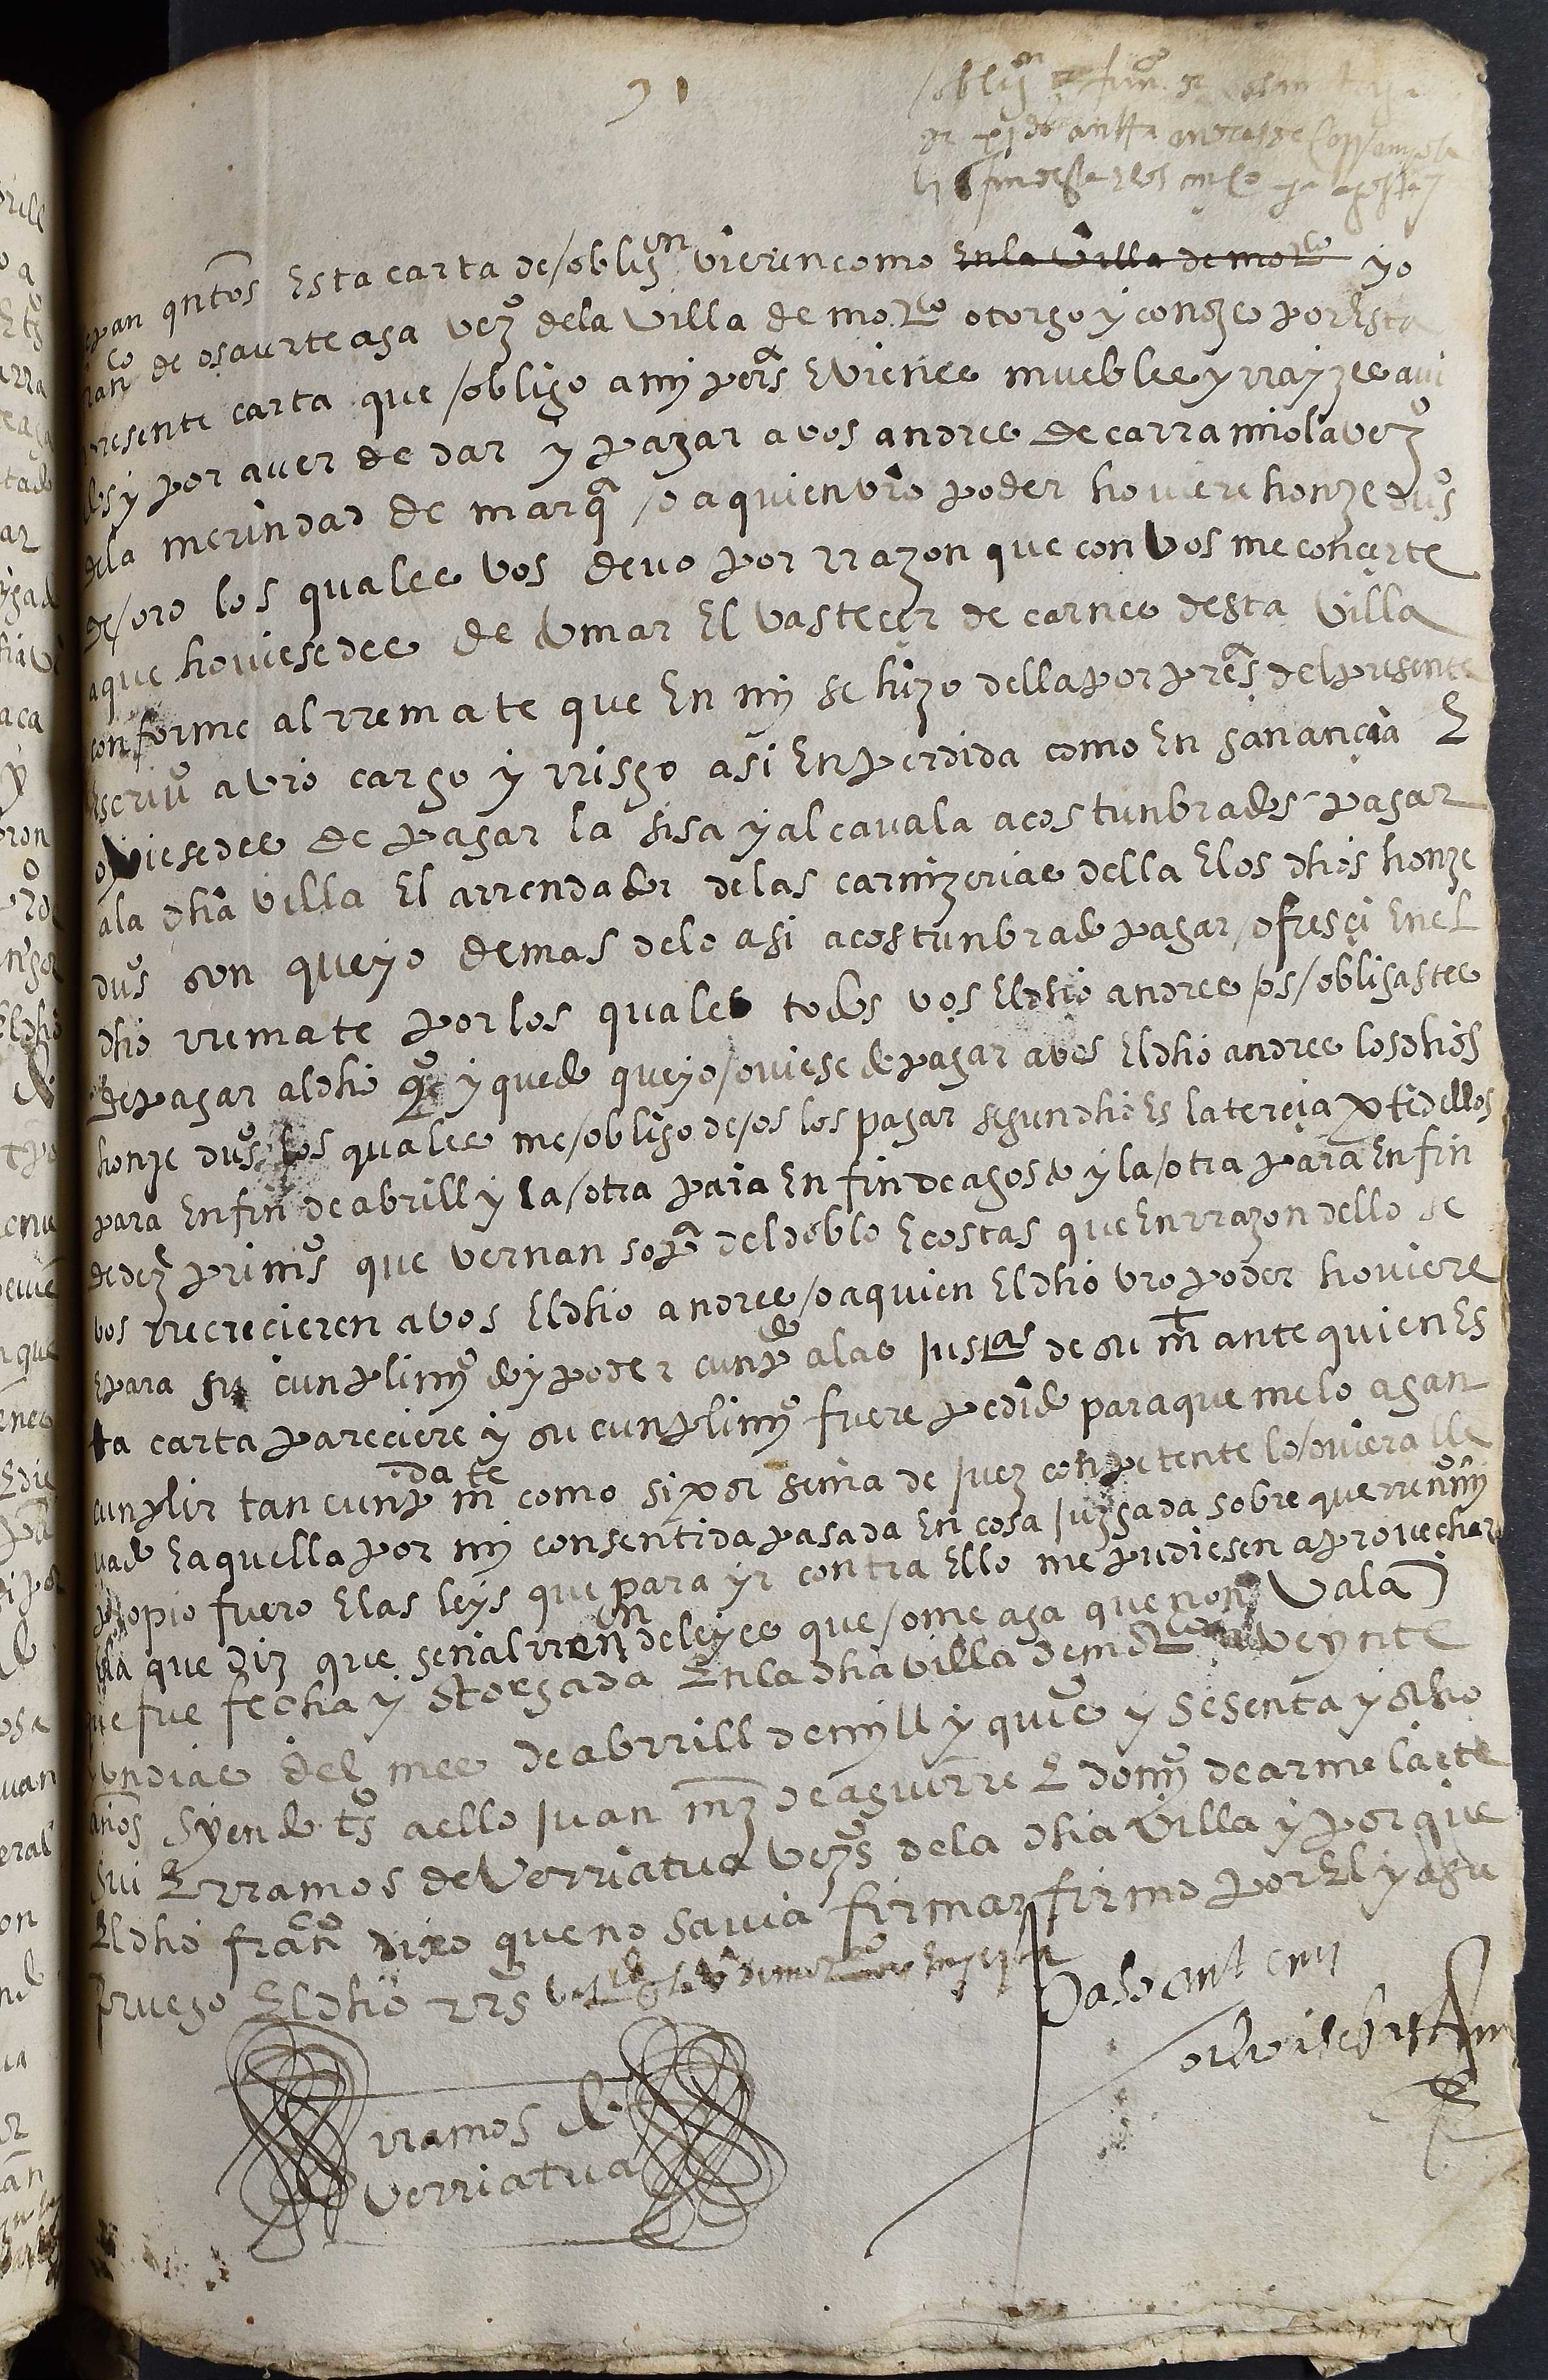 31
epan qntos Esta carta de obligon vieren como En la villa de mo^r^co yo
franco de osaurteaga vezo dela villa de mo^r^co otorgo y conozco por Esta
presente carta que obligo a mi persa E vienes muebles y rrayzes avi
dos y por aver de dar y pagar a vos andres de carramiola vezo
dela merindad de marqa o a quien vro poder hoviere honze dus
de oro los quales vos devo por rrazon que con vos me concerte
a que hoviesedes de tomar El vastecer de carnes desta villa
conforme al rremate que En my se hizo della por presa del presente
Escrivo a vro cargo y rrisgo asi En perdida como En ganançia E
oviesedes de pagar la sisa y alcavala acostunbrados pagar
ala dha villa El arrendador delas carnizerias della E los dhos honze
dus son que yo demas delo asi acostunbrado pagar ofresçi En el
dho rremate por los quales todos vos El dho andres os obligastes
de pagar al dho qo y quedo que yo oviese de pagar a vos El dho andres los dhos
honze dus los quales me obligo de os los pagar segun dho Es la tercia pte dellos
para En fin de abrill y la otra para En fin de agosto y la otra para En fin
de dez primos que vernan so pa del doblo E costas que En rrazon dello se
vos rrecrecieren a vos El dho andres o a quien El dho vro poder hoviere
E para su cunplimyo doy poder cunpdo alas justas de su mt ante quien Es
ta carta pareciere y su cunplimyo fuere pedido para que me lo agan
cunplir tan cunpdamte como si por sena de juez conpetente lo oviera lle
vado E aquella por my consentida pasada En cosa juzgada sobre que rreno my
propio fuero E las leys que para yr contra Ello me pudiesen aprovechar
que diz que general rrenon de leyes que ome aga que non vala
que fue fecha y otorgada En la dha villa de mo^r^co a veynte
y un dias del mes de abrrill de myll y quis y sesenta y ocho
años syendo ts a ello juan mrz de aguirre E domyo de armelaete
gui E rramos de verriatua vezos dela dha villa y por que
El dho franco dixo que no savia firmar firmo por El y a su
rruego El dho rrs
Paso ante my
rramos de
verriatua